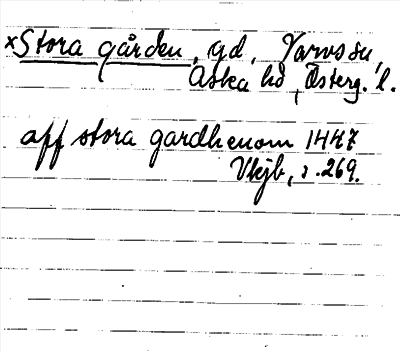 ×Stora gården, gd, Varvs sn,
Aska hd, Österg. l.
aff stora gardhenom 1447
Vkjb, s. 269.